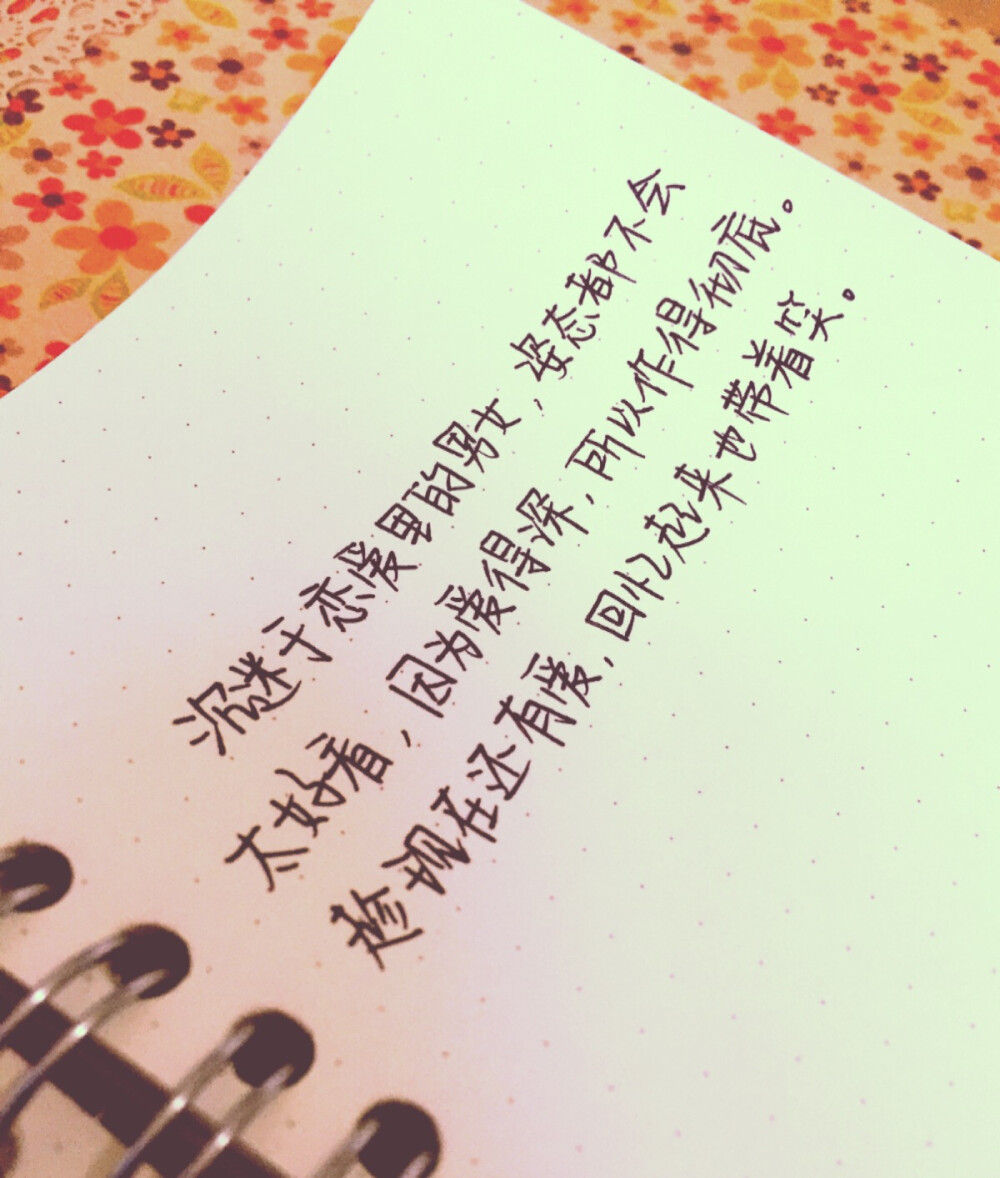 沉谜于恋爱里的男女，姿态都不会
太好看，因为爱得深，所以作得彻底。
趁现在还有爱，回忆起来也带着笑。